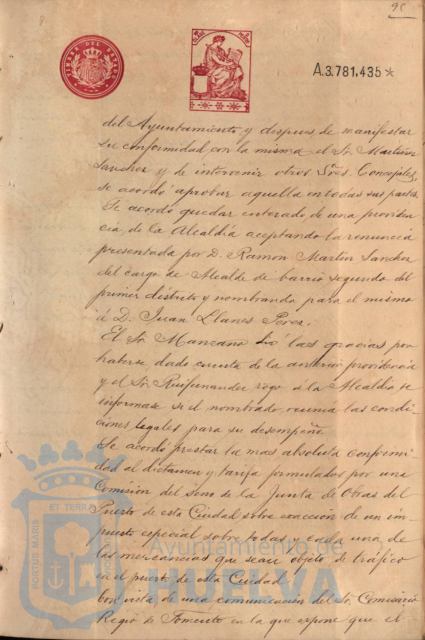 95
A.3.781.435*
del Ayuntamiento y despues de manifestar
su conformidad con la misma el Sr. Martinez
Sanchez y de intervenir otros Sres. Concejales,
se acordó aprobar aquella en todas sus partes.
Se acordó quedar enterado de una providen
cia de la Alcaldia aceptando la renuncia
presentada por D. Ramon Martin Sanchez
del cargo de Alcalde de barrio segundo del
primer distrito y nombrando para el mismo
á D. Juan Llanes Perez.
El Sr. Manzano dió las gracias por
haberse dado cuenta de la anterior providencia
y el Sr. Ruifernandez rogo á la Alcaldia se
informase si el nombrado reunia las condi
ciones legales para su desempeño.
Se acordó prestar la mas absoluta conformi
dad al dictamen y tarifa formulados por una
Comisión del seno de la Junta de Obras del
Puerto de esta Ciudad sobre exacción de un im
puesto especial sobre todas y cada una de
las mercancias que sean objeto de tráfico
en el puerto de esta Ciudad.
Con vista de una comunicacion del Sr. Comisario
Regio de Fomento en la que expone que el
PORTUS MARIS ET TERRAE
Ayuntamiento de
HUELVA